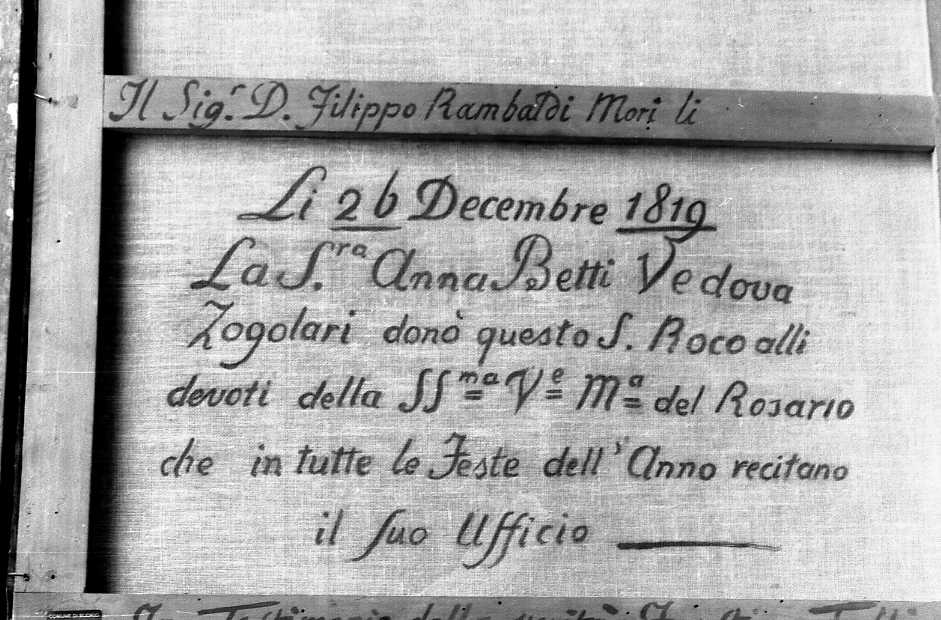 Il Sig.r D. Filippo Rambaldi Morì li
Li 26 Decembre 1819
La S.ra Anna Betti Vedova
Zogolari donò questo S. Roco alli
devoti della SSma Ve Ma del Rosario
che in tutte le Feste dell' Anno recitano
il suo Ufficio
In Testimonio della verità